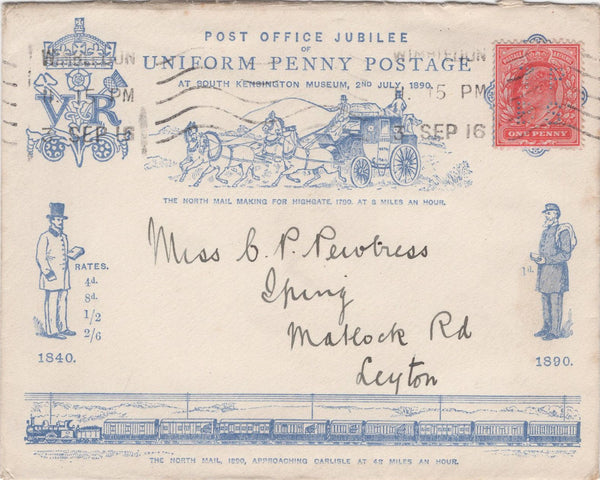 POST OFFICE JUBILEE
OF
UNIFORM PENNY POSTAGE
AT SOUTH KENSINGTON MUSEUM, 2ND JULY, 1890.
V R
WIMBLEDON
15 PM
3 SEP 16
WIMBLEDON
15 PM
3 SEP 16
ONE PENNY
THE NORTH MAIL MAKING FOR HIGHGATE, 1790, AT 8 MILES AN HOUR.
Miss C. P. Pewtress
Iping
Matlock Rd
Leyton
RATES.
4d.
8d.
1/2
2/6
1840.
1d.
1890.
THE NORTH MAIL, 1890, APPROACHING CARLISLE AT 48 MILES AN HOUR.